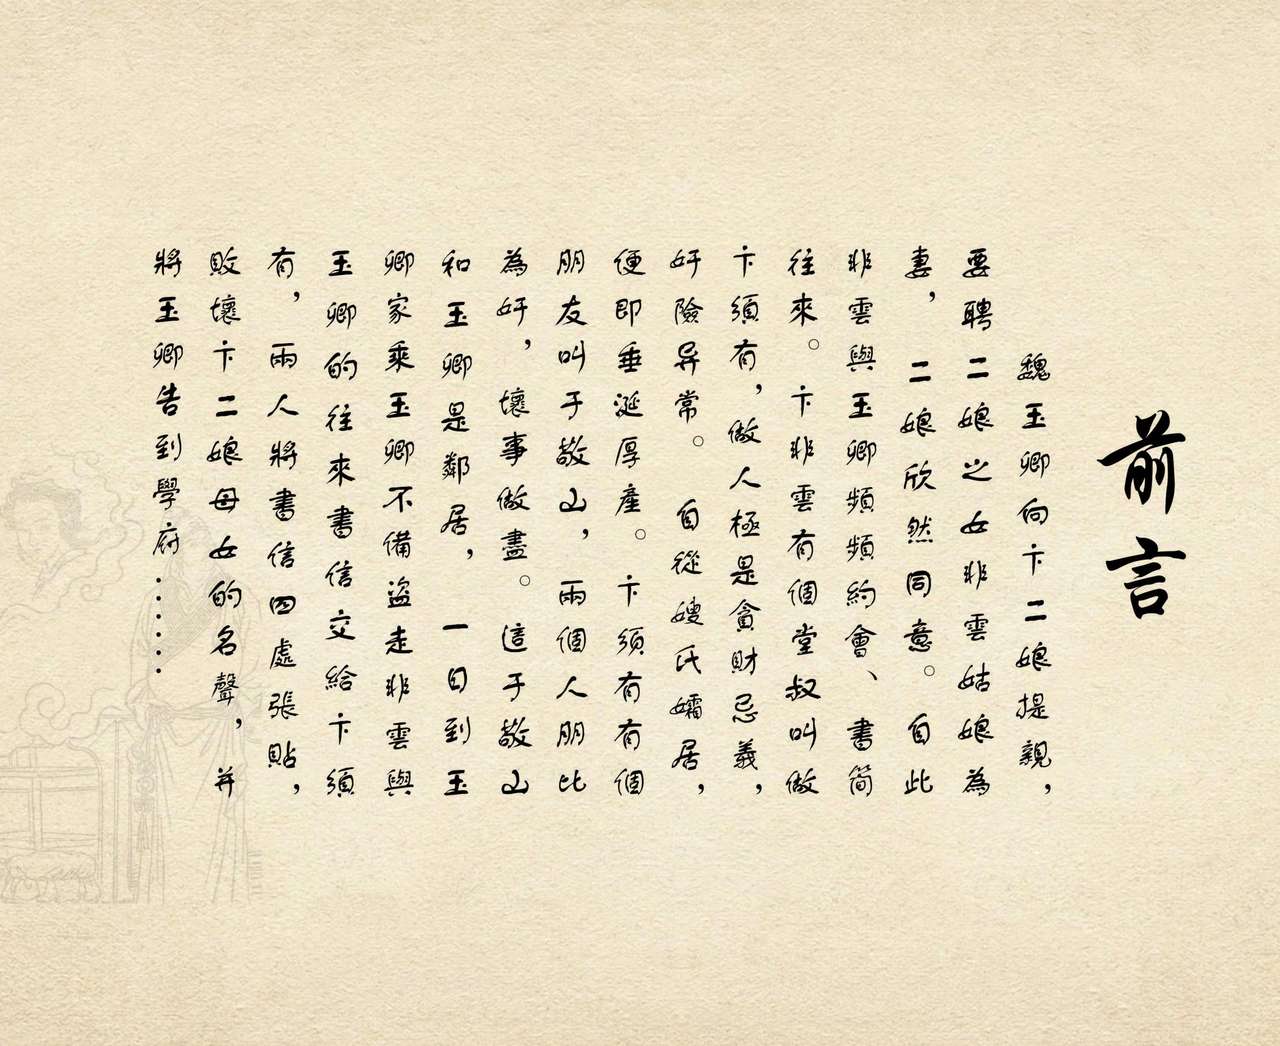 前言
魏玉卿向卞二娘提親，
要聘二娘之女非雲姑娘為
妻，二娘欣然同意。自此
非雲與玉卿頻頻約會、書簡
往來。卞非雲有個堂叔叫做
卞須有，做人極是貪財忌義，
奸險异常。自從嫂氏孀居，
便即垂涎厚產。卞須有有個
朋友叫于敬山，兩個人朋比
為奸，壞事做盡。這于敬山
和玉卿是鄰居，一日到玉
卿家乘玉卿不備盗走非雲與
玉卿的往來書信交給卞須
有，兩人將書信四處張貼，
敗壞卞二娘母女的名聲，并
將玉卿告到學府……